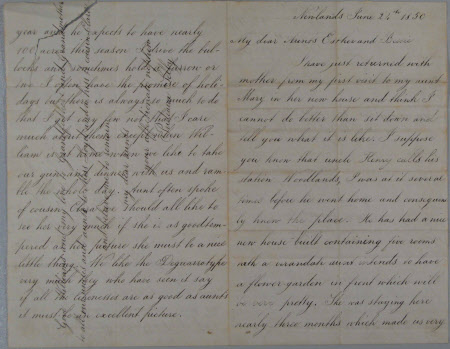 Newlands June 24th 1850
My dear Aunts Esther and Bessie
I have just returned with
mother from my first visit to my aunt
Mary in her new house and think I
cannot do better than sit down and
tell you what it is like. I suppose
you know that uncle Henry calls his
station Woodlands, I was at it several
times before he went home and consequently
know the place. He has had a nice
new house built containing five rooms
with a verandah aunt intends to have
a flower garden in front which will
be very pretty. She was staying here
nearly three months which made us very
year and he expects to have nearly
100 acres this season I drive the bul-
locks and sometimes hold a harrow or
two I often have the promise of holi-
days but there is always so much to do
that I get very few not that I care
much about them except when Wil-
liam is at home when we like to take
our guns and dinner with us and ram-
ble the whole day. Aunt often spoke
of cousin I should all like to
see her very much if she is as goodtem-
pered as her picture she must be a nice
little thing. We like the Daguerreotype
very much they who have seen it say
if all the likenesses are as good as aunts
it must be an excellent picture.